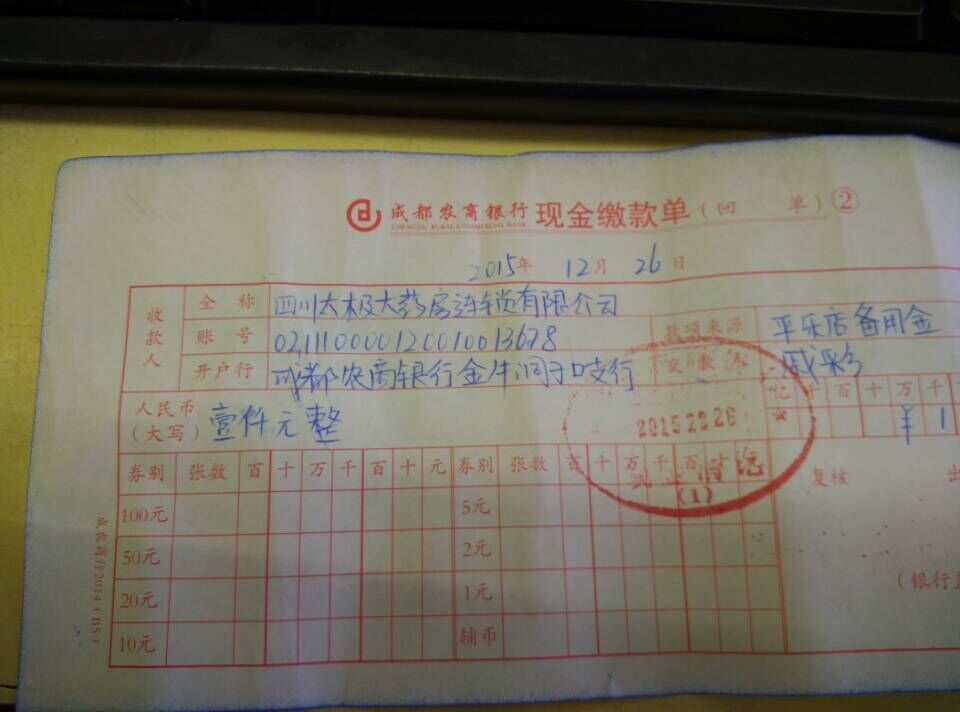 成都农商银行 现金缴款单（回 单）②
CHENGDU RURAL COMMERCIAL BANK
2015年 12月 26日
收款人
全称 四川太极大药房连锁有限公司
账号 02111000012001001 3678 款项来源 平乐店备用金
开户行 成都农商银行金牛洞子口支行 戚彩
人民币（大写） 壹仟元整 亿 千 百 十 万 千
¥ 1
20152226
(1)
券别 张数 百 十 万 千 百 十 元 券别 张数 百 十 万 千 百 十 元
复核
100元 5元
50元 2元
20元 1元
10元 辅币
（银行
成农商行2014（B5）